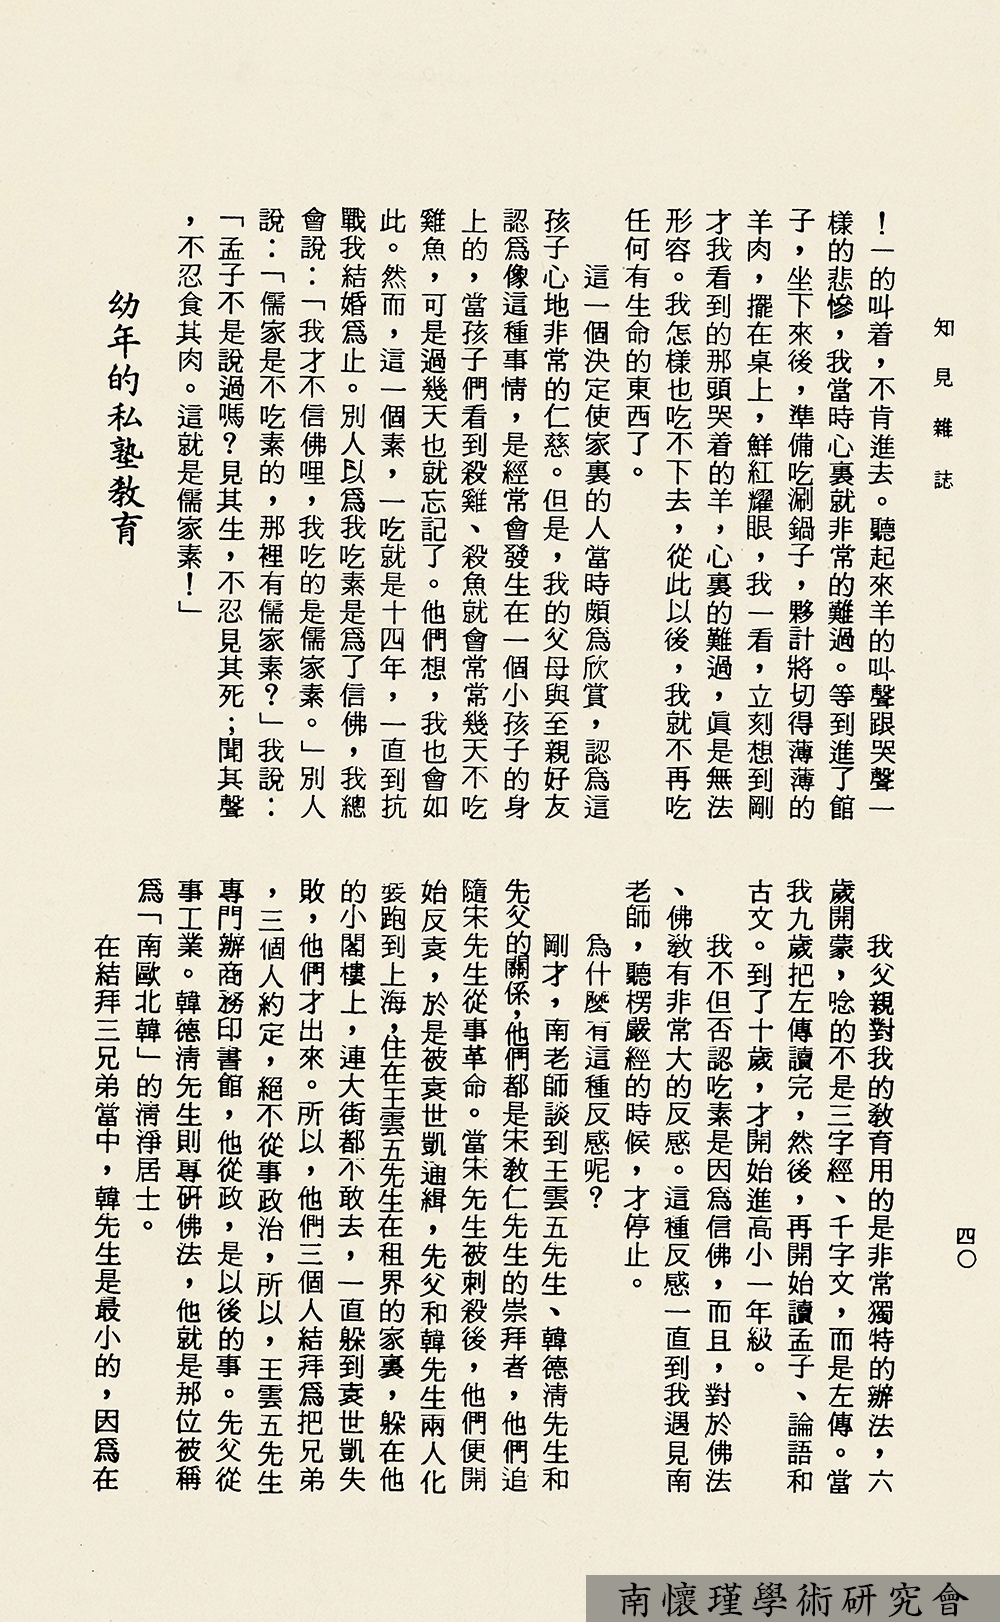 知見雜誌
四〇
！一的叫着，不肯進去。聽起來羊的叫聲跟哭聲一
樣的悲慘，我當時心裏就非常的難過。等到進了館
子，坐下來後，準備吃涮鍋子，夥計將切得薄薄的
羊肉，擺在桌上，鮮紅耀眼，我一看，立刻想到剛
才我看到的那頭哭着的羊，心裏的難過，眞是無法
形容。我怎樣也吃不下去，從此以後，我就不再吃
任何有生命的東西了。
這一個決定使家裏的人當時頗爲欣賞，認爲這
孩子心地非常的仁慈。但是，我的父母與至親好友
認爲像這種事情，是經常會發生在一個小孩子的身
上的，當孩子們看到殺雞、殺魚就會常常幾天不吃
雞魚，可是過幾天也就忘記了。他們想，我也會如
此。然而，這一個素，一吃就是十四年，一直到抗
戰我結婚爲止。別人以爲我吃素是爲了信佛，我總
會說：「我才不信佛哩，我吃的是儒家素。」別人
說：「儒家是不吃素的，那裡有儒家素？」我說：
「孟子不是說過嗎？見其生，不忍見其死；聞其聲
，不忍食其肉。這就是儒家素！」
幼年的私塾敎育
我父親對我的敎育用的是非常獨特的辦法，六
歲開蒙，唸的不是三字經、千字文，而是左傳。當
我九歲把左傳讀完，然後，再開始讀孟子、論語和
古文。到了十歲，才開始進高小一年級。
我不但否認吃素是因爲信佛，而且，對於佛法
、佛敎有非常大的反感。這種反感一直到我遇見南
老師，聽楞嚴經的時候，才停止。
爲什麽有這種反感呢？
剛才，南老師談到王雲五先生、韓德淸先生和
先父的關係，他們都是宋敎仁先生的崇拜者，他們追
隨宋先生從事革命。當宋先生被刺殺後，他們便開
始反袁，於是被袁世凱通緝，先父和韓先生兩人化
裝跑到上海，住在王雲五先生在租界的家裏，躲在他
的小閣樓上，連大街都不敢去，一直躲到袁世凱失
敗，他們才出來。所以，他們三個人結拜爲把兄弟
，三個人約定，絕不從事政治，所以，王雲五先生
專門辦商務印書館，他從政，是以後的事。先父從
事工業。韓德淸先生則專硏佛法，他就是那位被稱
爲「南歐北韓」的淸淨居士。
在結拜三兄弟當中，韓先生是最小的，因爲在
南懷瑾學術研究會